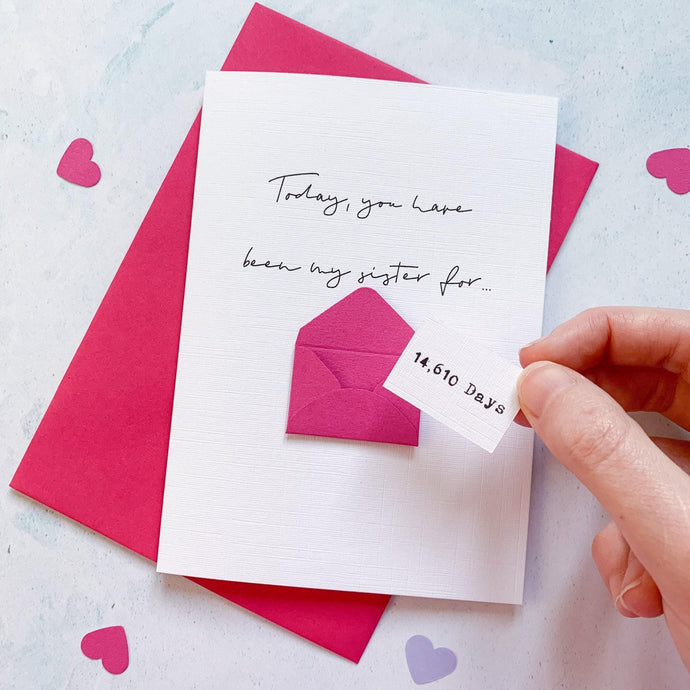 Today, you have
been my sister for...
14,610 Days